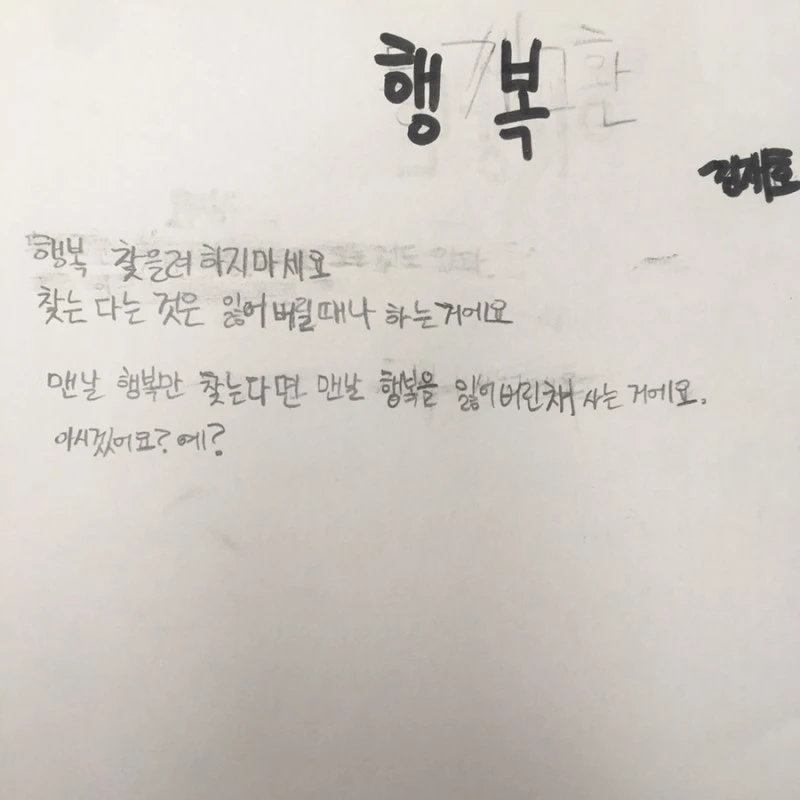 행복
김재호
행복 찾을려 하지마세요
찾는 다는 것은 잃어버릴때나 하는거에요
맨날 행복만 찾는다면 맨날 행복을 잃어버린채 사는 거에요.
아시겠어요? 예?